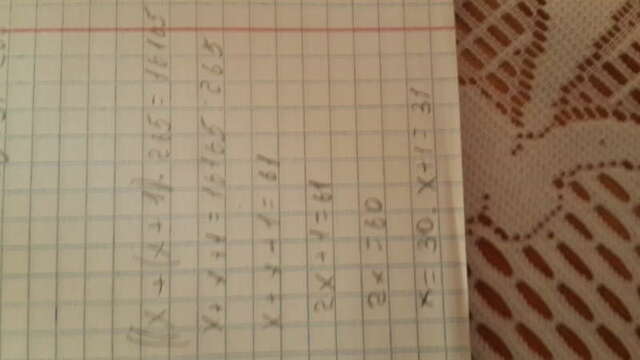 ((x + (x + 1) · 265 = 16165
x + x + 1 = 16165 : 265
x + x + 1 = 61
2x + 1 = 61
2x = 60
x = 30. x+1 = 31